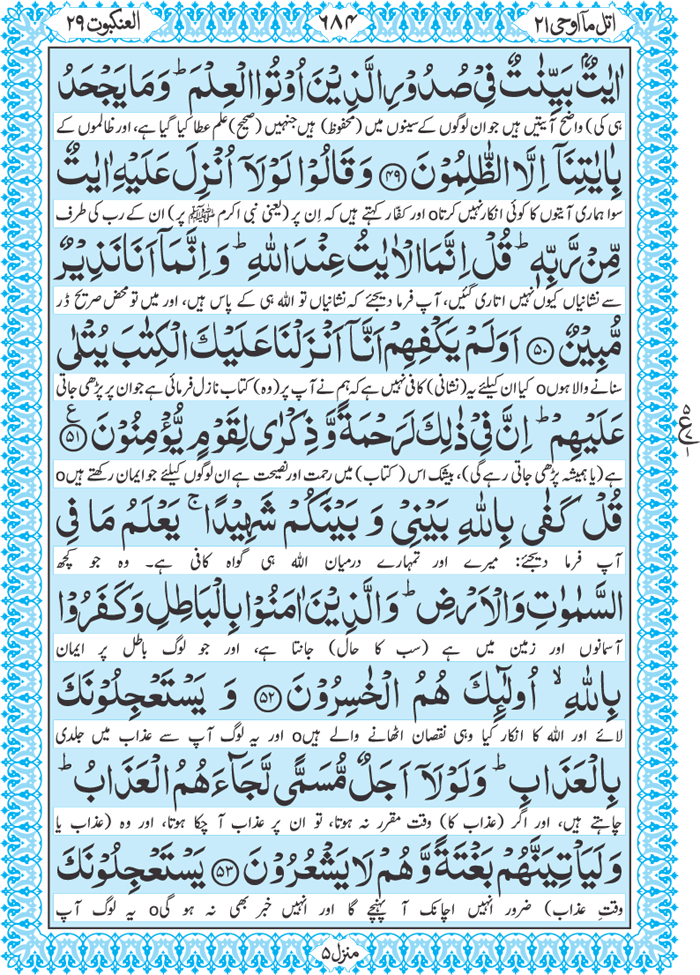 اتل مآ اوحی ۲۱ ۶۸۴ العنکبوت ۲۹
اٰیٰتٌۢ بَیِّنٰتٌ فِیْ صُدُوْرِ الَّذِیْنَ اُوْتُوا الْعِلْمَ ؕ وَ مَا یَجْحَدُ
ہی کی) واضح آیتیں ہیں جو ان لوگوں کے سینوں میں (محفوظ) ہیں جنہیں (صحیح) علم عطا کیا گیا ہے، اور ظالموں کے
بِاٰیٰتِنَاۤ اِلَّا الظّٰلِمُوْنَ ﴿۴۹﴾ وَ قَالُوْا لَوْلَاۤ اُنْزِلَ عَلَیْهِ اٰیٰتٌ
سوا ہماری آیتوں کا کوئی انکار نہیں کرتاo اور کفّار کہتے ہیں کہ اِن پر (یعنی نبی اکرم ﷺ پر) ان کے رب کی طرف
مِّنْ رَّبِّهٖ ؕ قُلْ اِنَّمَا الْاٰیٰتُ عِنْدَ اللّٰهِ ؕ وَ اِنَّمَاۤ اَنَا نَذِیْرٌ
سے نشانیاں کیوں نہیں اتاری گئیں، آپ فرما دیجئے کہ نشانیاں تو اللہ ہی کے پاس ہیں، اور میں تو محض صریح ڈر
مُّبِیْنٌ ﴿۵۰﴾ اَوَ لَمْ یَكْفِهِمْ اَنَّاۤ اَنْزَلْنَا عَلَیْكَ الْكِتٰبَ یُتْلٰی
سنانے والا ہوںo کیا ان کیلئے یہ (نشانی) کافی نہیں ہے کہ ہم نے آپ پر (وہ) کتاب نازل فرمائی ہے جو ان پر پڑھی جاتی
عَلَیْهِمْ ؕ اِنَّ فِیْ ذٰلِكَ لَرَحْمَةً وَّ ذِكْرٰی لِقَوْمٍ یُّؤْمِنُوْنَ ﴿۵۱﴾ ع
ہے (یا ہمیشہ پڑھی جاتی رہے گی)، بیشک اس (کتاب) میں رحمت اور نصیحت ہے ان لوگوں کیلئے جو ایمان رکھتے ہیںo
قُلْ كَفٰی بِاللّٰهِ بَیْنِیْ وَ بَیْنَكُمْ شَهِیْدًا ۚ یَعْلَمُ مَا فِی
آپ فرما دیجئے: میرے اور تمہارے درمیان اللہ ہی گواہ کافی ہے۔ وہ جو کچھ
السَّمٰوٰتِ وَ الْاَرْضِ ؕ وَ الَّذِیْنَ اٰمَنُوْا بِالْبَاطِلِ وَ كَفَرُوْا
آسمانوں اور زمین میں ہے (سب کا حال) جانتا ہے، اور جو لوگ باطل پر ایمان
بِاللّٰهِ ۙ اُولٰٓئِكَ هُمُ الْخٰسِرُوْنَ ﴿۵۲﴾ وَ یَسْتَعْجِلُوْنَكَ
لائے اور اللہ کا انکار کیا وہی نقصان اٹھانے والے ہیںo اور یہ لوگ آپ سے عذاب میں جلدی
بِالْعَذَابِ ؕ وَ لَوْلَاۤ اَجَلٌ مُّسَمًّی لَّجَآءَهُمُ الْعَذَابُ ؕ
چاہتے ہیں، اور اگر (عذاب کا) وقت مقرر نہ ہوتا، تو ان پر عذاب آ چکا ہوتا، اور وہ (عذاب یا
وَ لَیَاْتِیَنَّهُمْ بَغْتَةً وَّ هُمْ لَا یَشْعُرُوْنَ ﴿۵۳﴾ یَسْتَعْجِلُوْنَكَ
وقتِ عذاب) ضرور انہیں اچانک آ پہنچے گا اور انہیں خبر بھی نہ ہو گیo یہ لوگ آپ
منزل ۵